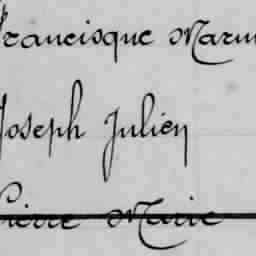 Francisque Mariu
Joseph Julien
Pierre Marie